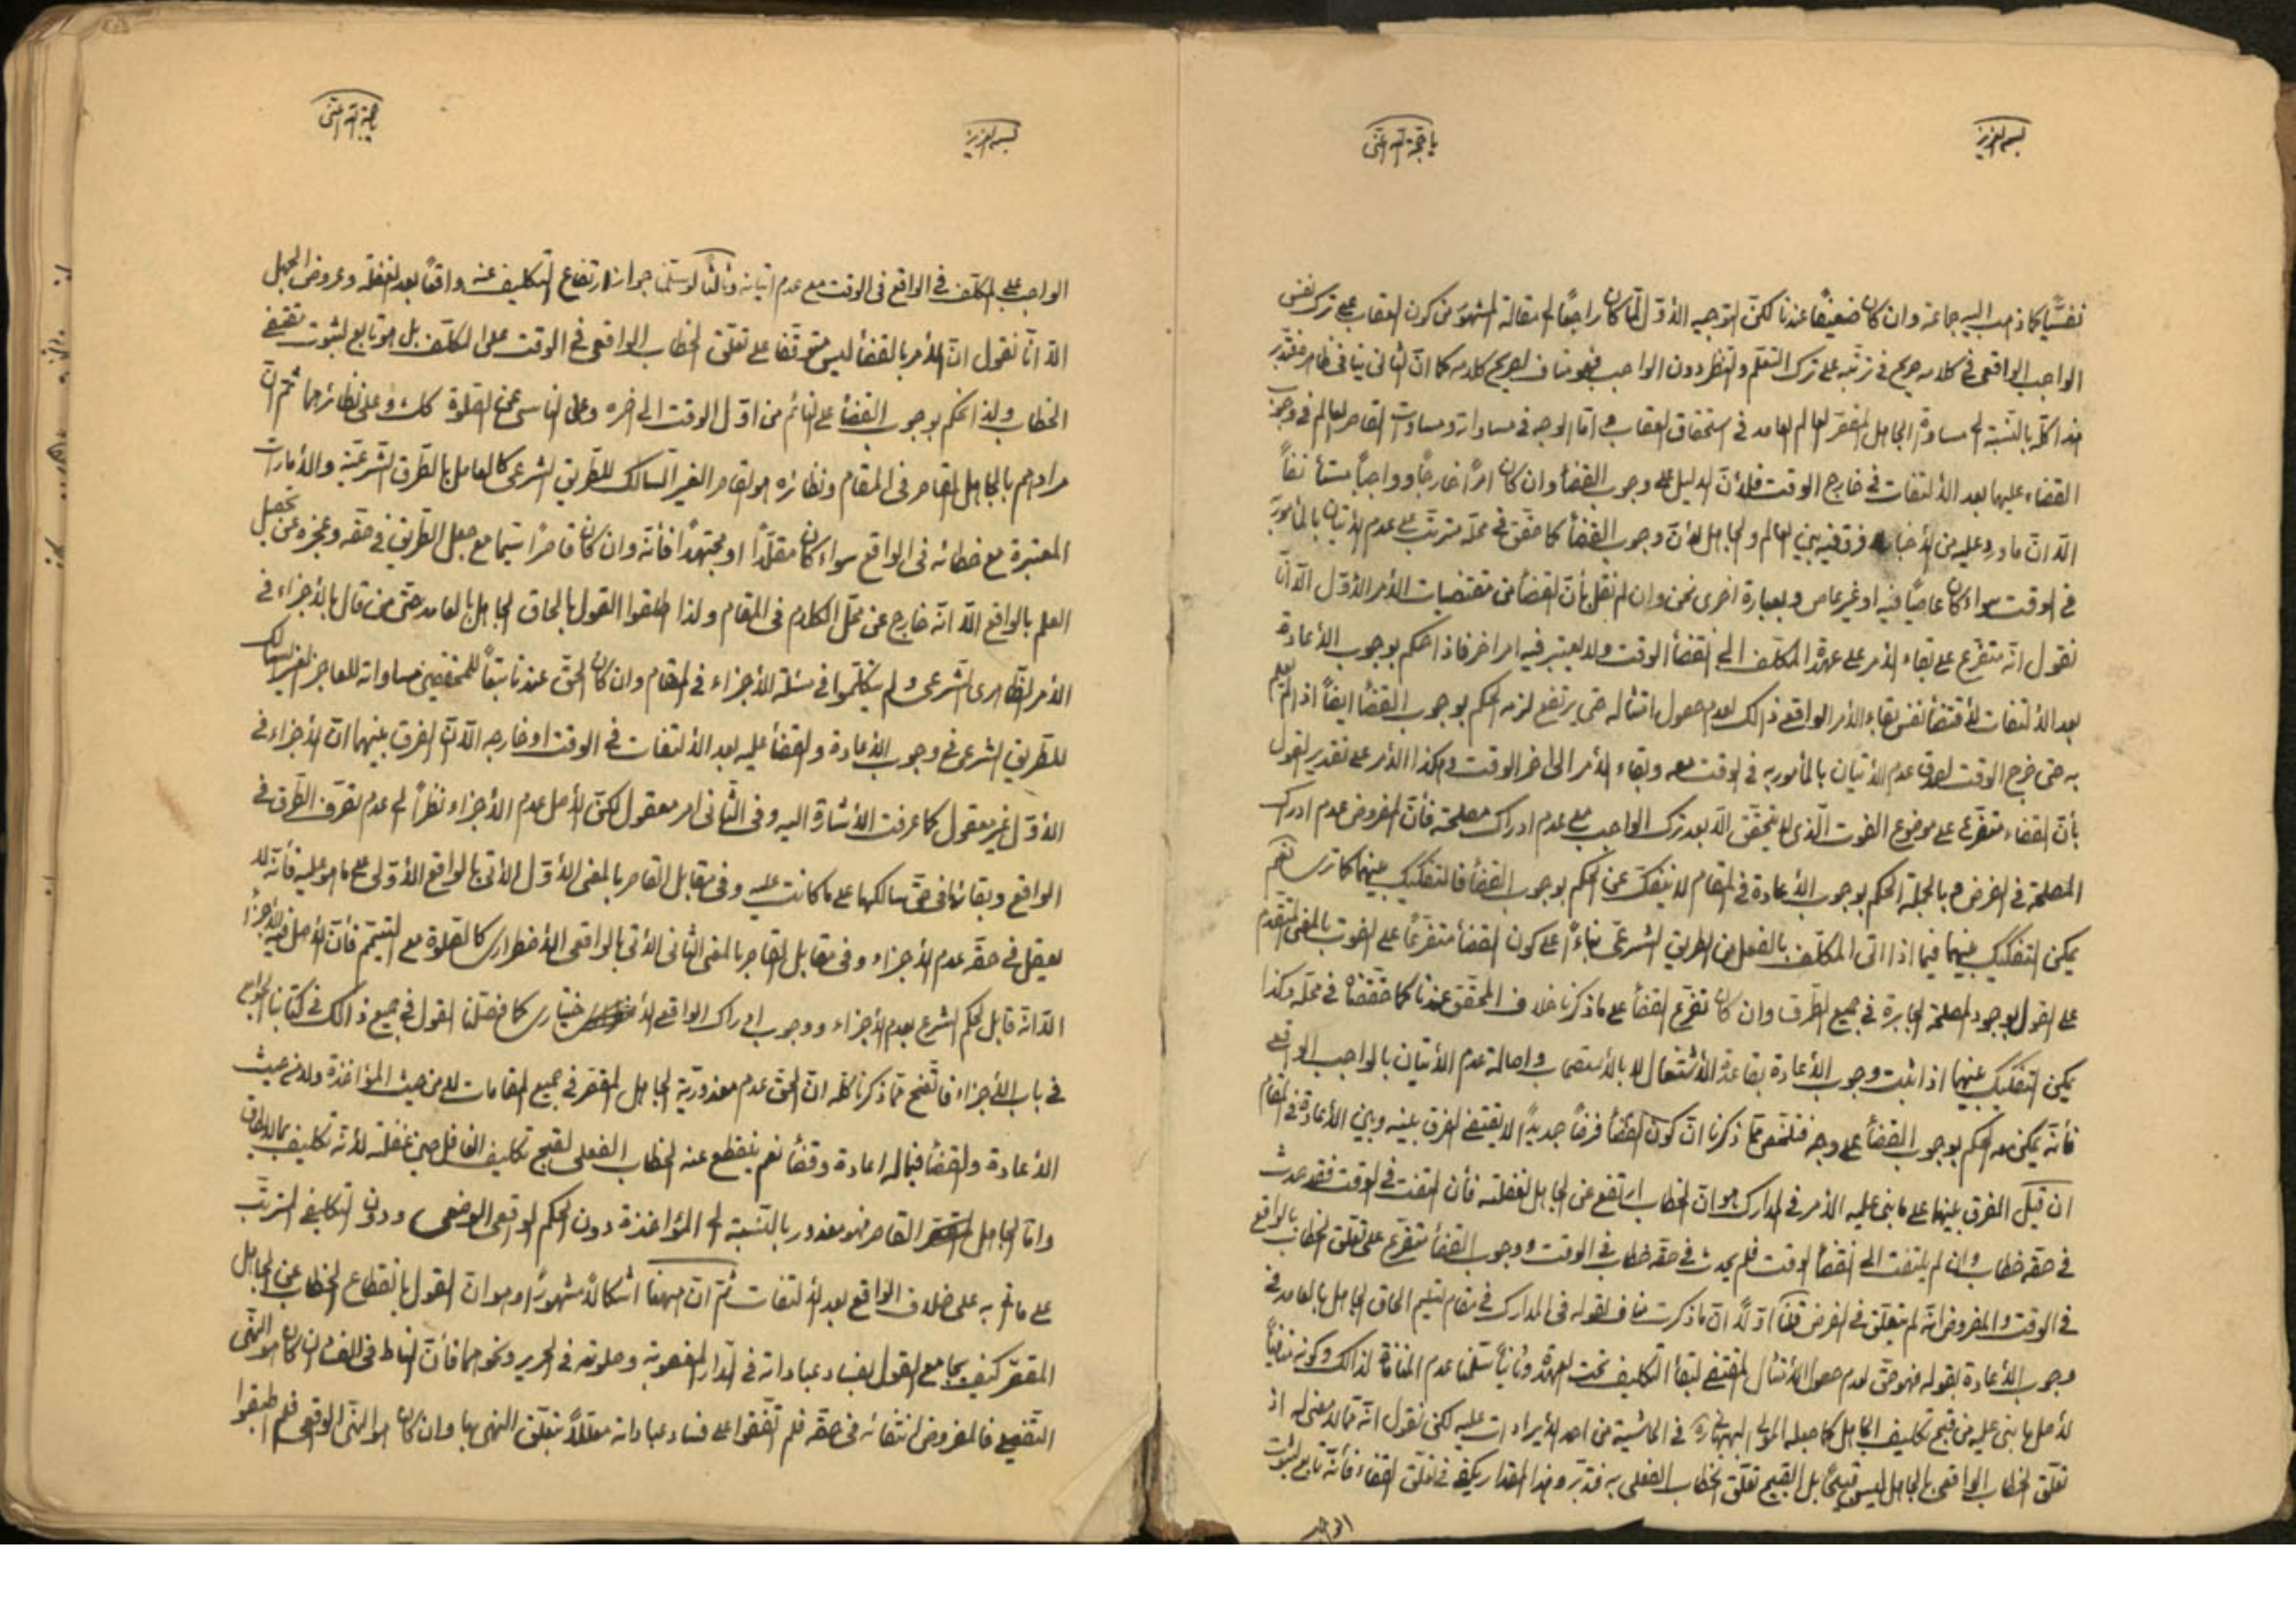 بسم العزيز
يا حجة الله اغثنى
نفسيًّا كما ذهب اليه جماعة وان كان ضعيفًا عندنا لكنّ التوجيه الأوّل لمّا كان راجعًا الى مقالة المشهور من كون العقاب على ترك نفس
الواجب الواقعى فى كلامه صريح فى ترتّبه على ترك التعلّم والنظر دون الواجب فهو مناف لصريح كلامه كما انّ الثانى ينافى ظاهر
هذا كلّه بالنّسبة الى مساواة الجاهل المقصّر للعالم العامد فى استحقاق العقاب و امّا الوجه فى مساواته ومساوات القاصر للعالم فى وجوب
القضاء عليهما بعد الألتفات فى خارج الوقت فلأنّ الدليل على وجوب القضأ وان كان امرًا خارجًا وواجبًا مستأنفًا
الّا انّ ما ورد عليه من الأخبار فرق فيه بين العالم والجاهل لأنّ وجوب القضأ كما حقّق فى محلّه مترتّب على عدم الأتيان بالمأمور به
فى الوقت سواء كان عاصيًا فيه او غير عاص وبعبارة اخرى نحن وان لم نقل بأنّ القضأ من مقتضيات الأمر الأوّل الّا انّا
نقول انّه متفرّع على بقاء الأمر على عهدة المكلّف الى انقضأ الوقت ولا يعتبر فيه امر اخر فاذا حكم بوجوب الأعادة
بعد الألتفات لأقتضأ نفس بقاء الأمر الواقعى ذالك لعدم حصول امتثاله حتى يرتفع لزمه الحكم بوجوب القضأ ايضًا اذا لم يعلم
به حتى خرج الوقت لصدق عدم الأتيان بالمأمور به فى الوقت معه وبقاء الأمر الى اخر الوقت وهكذا الأمر على تقدير القول
بأنّ القضاء متفرّع على موضوع الفوت الّذى لا يتحقّق الّا بعد ترك الواجب مع عدم ادراك مصلحته فأنّ المفروض عدم ادراك
المصلحة فى الفرض وبالجملة الحكم بوجوب الأعادة فى المقام لا ينفكّ عن الحكم بوجوب القضأ فالتفكيك بينهما كما ترى نعم
يمكن التفكيك بينهما فيما اذا اتى المكلّف بالفعل من الطريق الشرعى بناءً على كون القضأ متفرّعًا على الفوت بالمعنى المتقدّم
على القول بوجود المصلحة الجابرة فى جميع الطّرق وان كان تفرّع القضأ على ما ذكرنا خلاف المحقّق عندنا كما حقّقناه فى محلّه وكذا
يمكن التفكيك بينهما اذا ثبت وجوب الأعادة بقاعدة الأشتغال لا بالأستصحاب واصالة عدم الأتيان بالواجب الواقعى
فأنّه يمكن معه الحكم بوجوب القضأ على وجه فتلخّص ممّا ذكرنا انّ كون القضأ فرضًا جديدًا لا يقتضى الفرق بينه وبين الأعادة فى المقام
ان قيل الفرق بينهما على ما بنى عليه الأمر فى المدارك هو انّ الخطاب ارتفع عن الجاهل لغفلته فأن التفت فى الوقت فقد حدث
فى حقّه خطاب وان لم يلتفت الى انقضأ الوقت فلم يحدث فى حقّه خطاب فى الوقت و وجوب القضأ متفرّع على تعلّق الخطاب بالواقع
فى الوقت والمفروض انّه لم يتعلّق فى الفرض قلنا اوّلًا انّ ما ذكرت مناف لقوله فى المدارك فى مقام تسليم الحاق الجاهل بالعامد فى
وجوب الأعادة بقوله فهو حقّ لعدم حصول الأمتثال المقتضى لبقأ التكليف تحت العهدة وثانيًا سلّمنا عدم المنافاة لذالك وكونه منافيًا
لأصل ما بنى عليه من قبح تكليف الجاهل كما جعله المولى البهبهانى فى الحاشية من احد الأيرادات عليه لكن نقول انّه ممّا لا معنى له اذ
تعلّق الخطاب الواقعى بالجاهل ليس قبيحًا بل القبيح تعلّق الخطاب الفعلى به فتدبّر وهذا المقدار يكفى فى تعلّق القضاء فأنّه تابع لثبوت
الواجب
بسم العزيز
يا حجة الله اغثنى
الواجب على المكلّف فى الواقع فى الوقت مع عدم اتيانه وثالثًا لو سلّمنا جواز ارتفاع التكليف عنه واقعًا بعد الغفلة وعروض الجهل
الّا انّا نقول انّ الأمر بالقضأ ليس متوقّفا على تعلّق الخطاب الواقعى فى الوقت على المكلّف بل هو تابع لثبوت مقتضى
الخطاب ولذا نحكم بوجوب القضأ على النائم من اوّل الوقت الى اخره وعلى الناسى عن الصلوة كك وعلى نظائرهما ثمّ انّ
مرادهم بالجاهل القاصر فى المقام ونظائره هو القاصر الغير السالك للطّريق الشرعى كالعامل بالطّرق الشرعيّة والأمارات
المعتبرة مع خطائه فى الواقع سواء كان مقلّدًا او مجتهدًا فأنّه وان كان قاصرًا سيّما مع جعل الطّريق فى حقّه وعجزه عن تحصيل
العلم بالواقع الّا انّه خارج عن محلّ الكلام فى المقام ولذا اطلقوا القول بالحاق الجاهل بالعامد حتّى من قال بالأجزاء فى
الأمر الظّاهرى الشّرعى ولم يتكلّموا فى مسئلة الأجزاء فى المقام وان كان الحقّ عندنا تبعًا للمحقّقين مساواته للعاجز الغير السالك
للطّريق الشرعى فى وجوب الأعادة والقضأ عليه بعد الألتفات فى الوقت او خارجه الّا انّ الفرق بينهما انّ الأجزاء فى
الأوّل غير معقول كما عرفت الأشارة اليه وفى الثّانى امر معقول لكنّ الأصل عدم الأجزاء نظرًا الى عدم تصرّف الطّرق فى
الواقع وبقائه فى حقّ سالكها على ما كانت عليه وفى مقابل القاصر بالمعنى الأوّل الأتى بالواقع الأوّلى على ما هو عليه فأنّه لا
يعقل فى حقّه عدم الأجزاء وفى مقابل القاصر بالمعنى الثانى الأتى بالواقعى الأضطرارى كالصّلوة مع التيمّم فأنّ الأصل فيه الأجزأ
الّا انّه قابل لحكم الشرع بعدم الأجزاء ووجوب ادراك الواقع الأختيارى كما فصّلنا القول فى جميع ذالك فى كتابنا
فى باب الأجزاء فاتّضح ممّا ذكرنا كلّه انّ الحقّ عدم معذوريّة الجاهل المقصّر فى جميع المقامات لا من حيث المؤاخذة ولا من حيث
الأعادة والقضأ فيما له اعادة وقضأ نعم ينقطع عنه الخطاب الفعلى لقبح تكليف الغافل حين غفلته لأنّه تكليف بما لا يطاق
وامّا الجاهل القاصر فهو معذور بالنّسبة الى المؤاخذة دون الحكم الواقعى الوضعى ودون التكليف المترتّب
على ما اتى به على خلاف الواقع بعد الألتفات ثمّ انّ ههنا اشكالًا مشهورًا وهو انّ القول بانقطاع الخطاب عن الجاهل
المقصّر كيف يجامع القول بفساد عباداته فى الدّار المغصوبة وصلوته فى الحرير ونحوهما فأنّ المناط فى الفساد ان كان هو النّهى
الفعلى فالمفروض انتفائه فى حقّه فلم اتّفقوا على فساد عباداته معلّلًا بتعلّق النهى بها وان كان هو النّهى الواقعى فلم اطبقوا